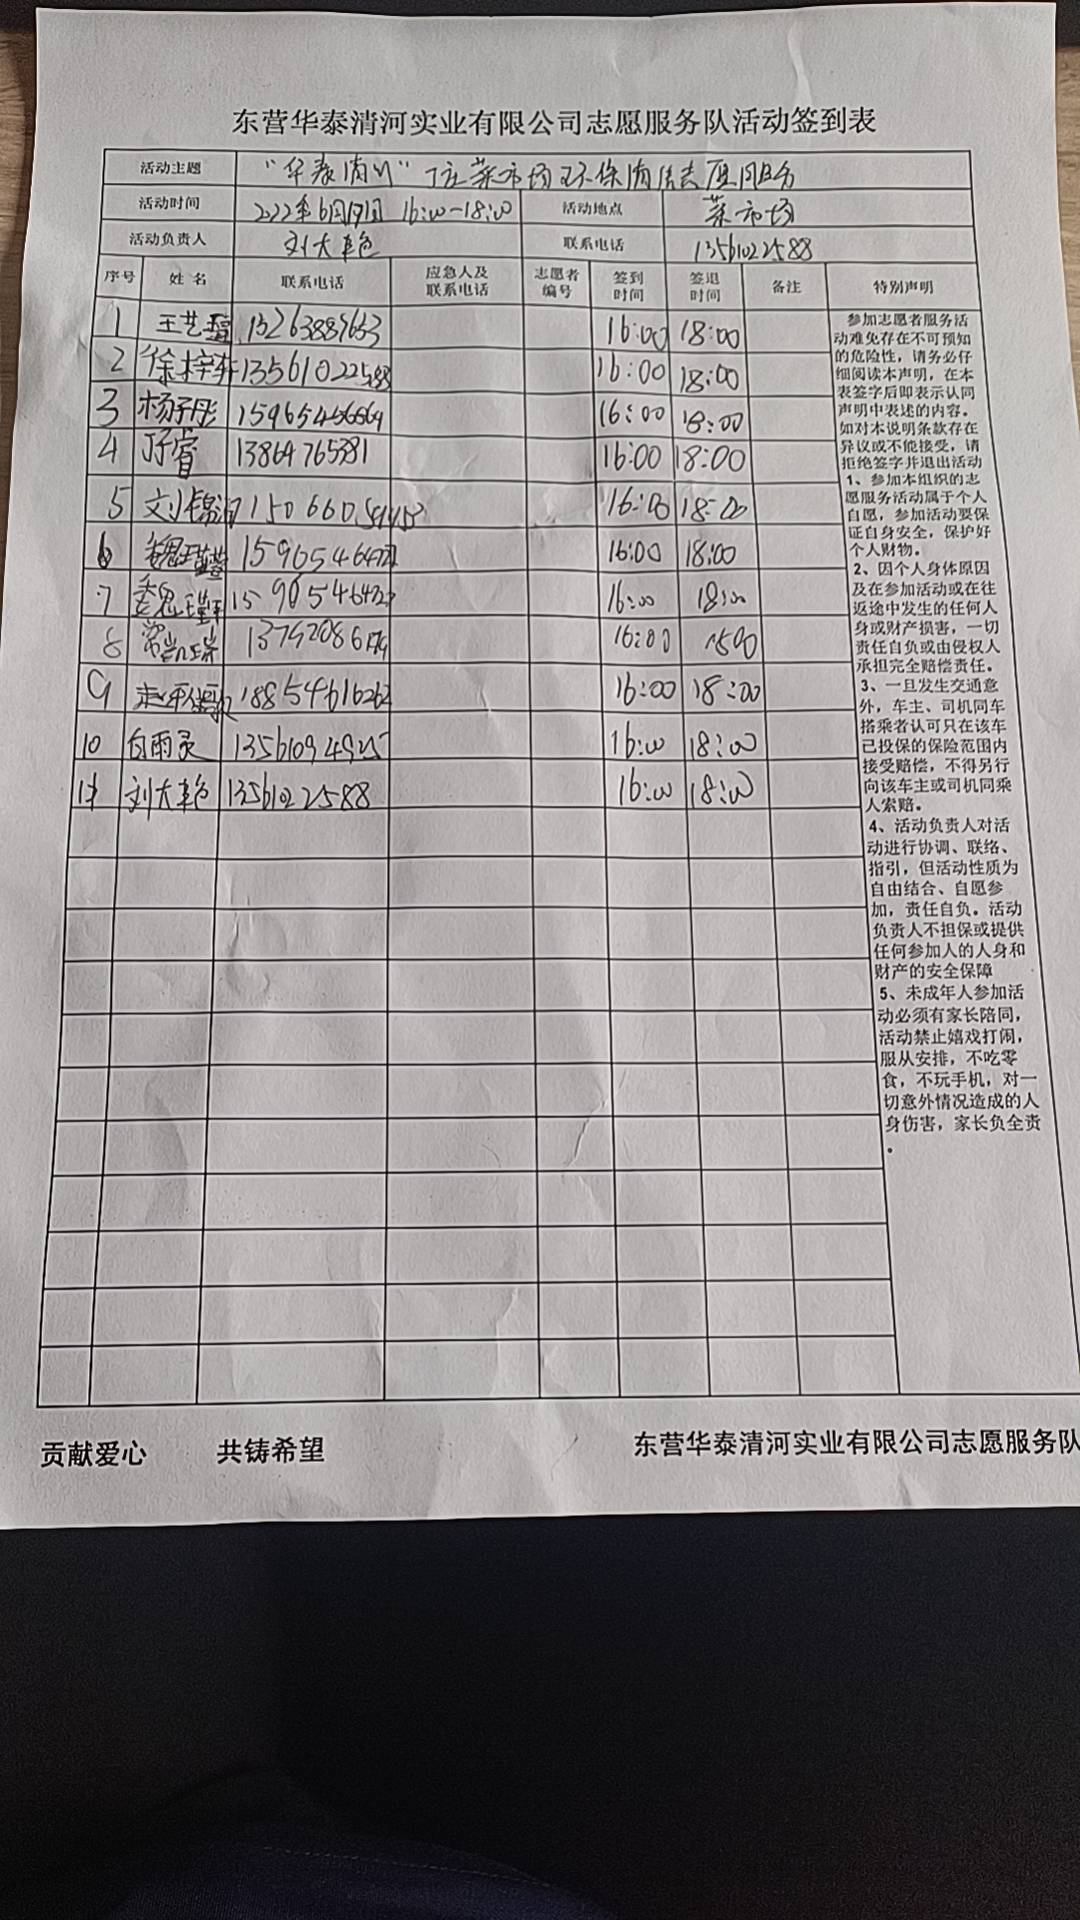 东营华泰清河实业有限公司志愿服务队活动签到表
活动主题 "华泰清河" 丁庄菜市场环保清洁志愿服务
活动时间 2022年6月19日 16:00-18:00 活动地点 菜市场
活动负责人 刘大 联系电话 13561022588
序号 姓名 联系电话 应急人及联系电话 志愿者编号 签到时间 签退时间 备注 特别声明
1 王艺 16:00 18:00
2 徐梓轩 13561022588 16:00 18:00
3 杨子彤 16:00 18:00
4 睿 13864765381 16:00 18:00
5 刘锦润 16:00 18:00
6 魏瑾萱 16:00 18:00
7 魏瑾轩 16:00 18:00
8 常凯瑞 16:00
9 18854616262 16:00 18:00
10 白雨灵 13561094925 16:00 18:00
11 刘大 13561022588 16:00 18:00
参加志愿者服务活
动难免存在不可预知
的危险性，请务必仔
细阅读本声明，在本
表签字后即表示认同
声明中表述的内容。
如对本说明条款存在
异议或不能接受，请
拒绝签字并退出活动
1、参加本组织的志
愿服务活动属于个人
自愿，参加活动要保
证自身安全，保护好
个人财物。
2、因个人身体原因
及在参加活动或在往
返途中发生的任何人
身或财产损害，一切
责任自负或由侵权人
承担完全赔偿责任。
3、一旦发生交通意
外，车主、司机同车
搭乘者认可只在该车
已投保的保险范围内
接受赔偿，不得另行
向该车主或司机同乘
人索赔。
4、活动负责人对活
动进行协调、联络、
指引，但活动性质为
自由结合、自愿参
加，责任自负。活动
负责人不担保或提供
任何参加人的人身和
财产的安全保障
5、未成年人参加活
动必须有家长陪同，
活动禁止嬉戏打闹，
服从安排，不吃零
食，不玩手机，对一
切意外情况造成的人
身伤害，家长负全责
。
贡献爱心 共铸希望 东营华泰清河实业有限公司志愿服务队